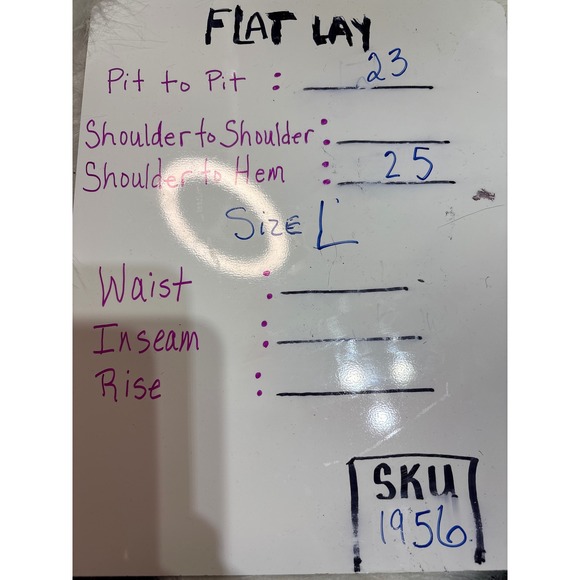 FLAT LAY
Pit to Pit : 23
Shoulder to Shoulder :
Shoulder to Hem : 25
SIZE L
Waist :
Inseam :
Rise :
SKU
1956